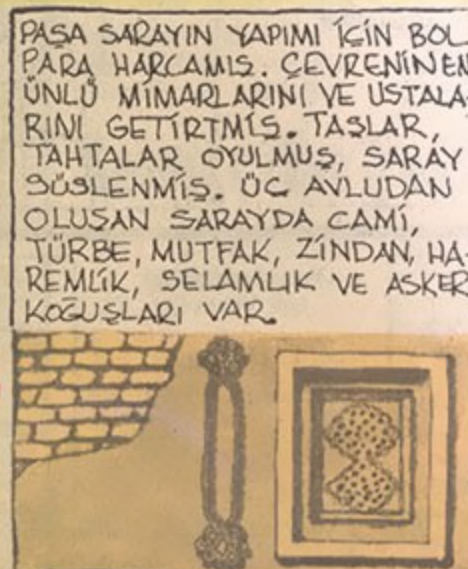 PAŞA SARAYIN YAPIMI İÇİN BOL
PARA HARCAMIŞ. ÇEVRENİN EN
ÜNLÜ MİMARLARINI VE USTALA-
RINI GETİRTMİŞ. TAŞLAR,
TAHTALAR OYULMUŞ, SARAY
SÜSLENMİŞ. ÜÇ AVLUDAN
OLUŞAN SARAYDA CAMİ,
TÜRBE, MUTFAK, ZİNDAN, HA-
REMLİK, SELAMLIK VE ASKER
KOĞUŞLARI VAR.